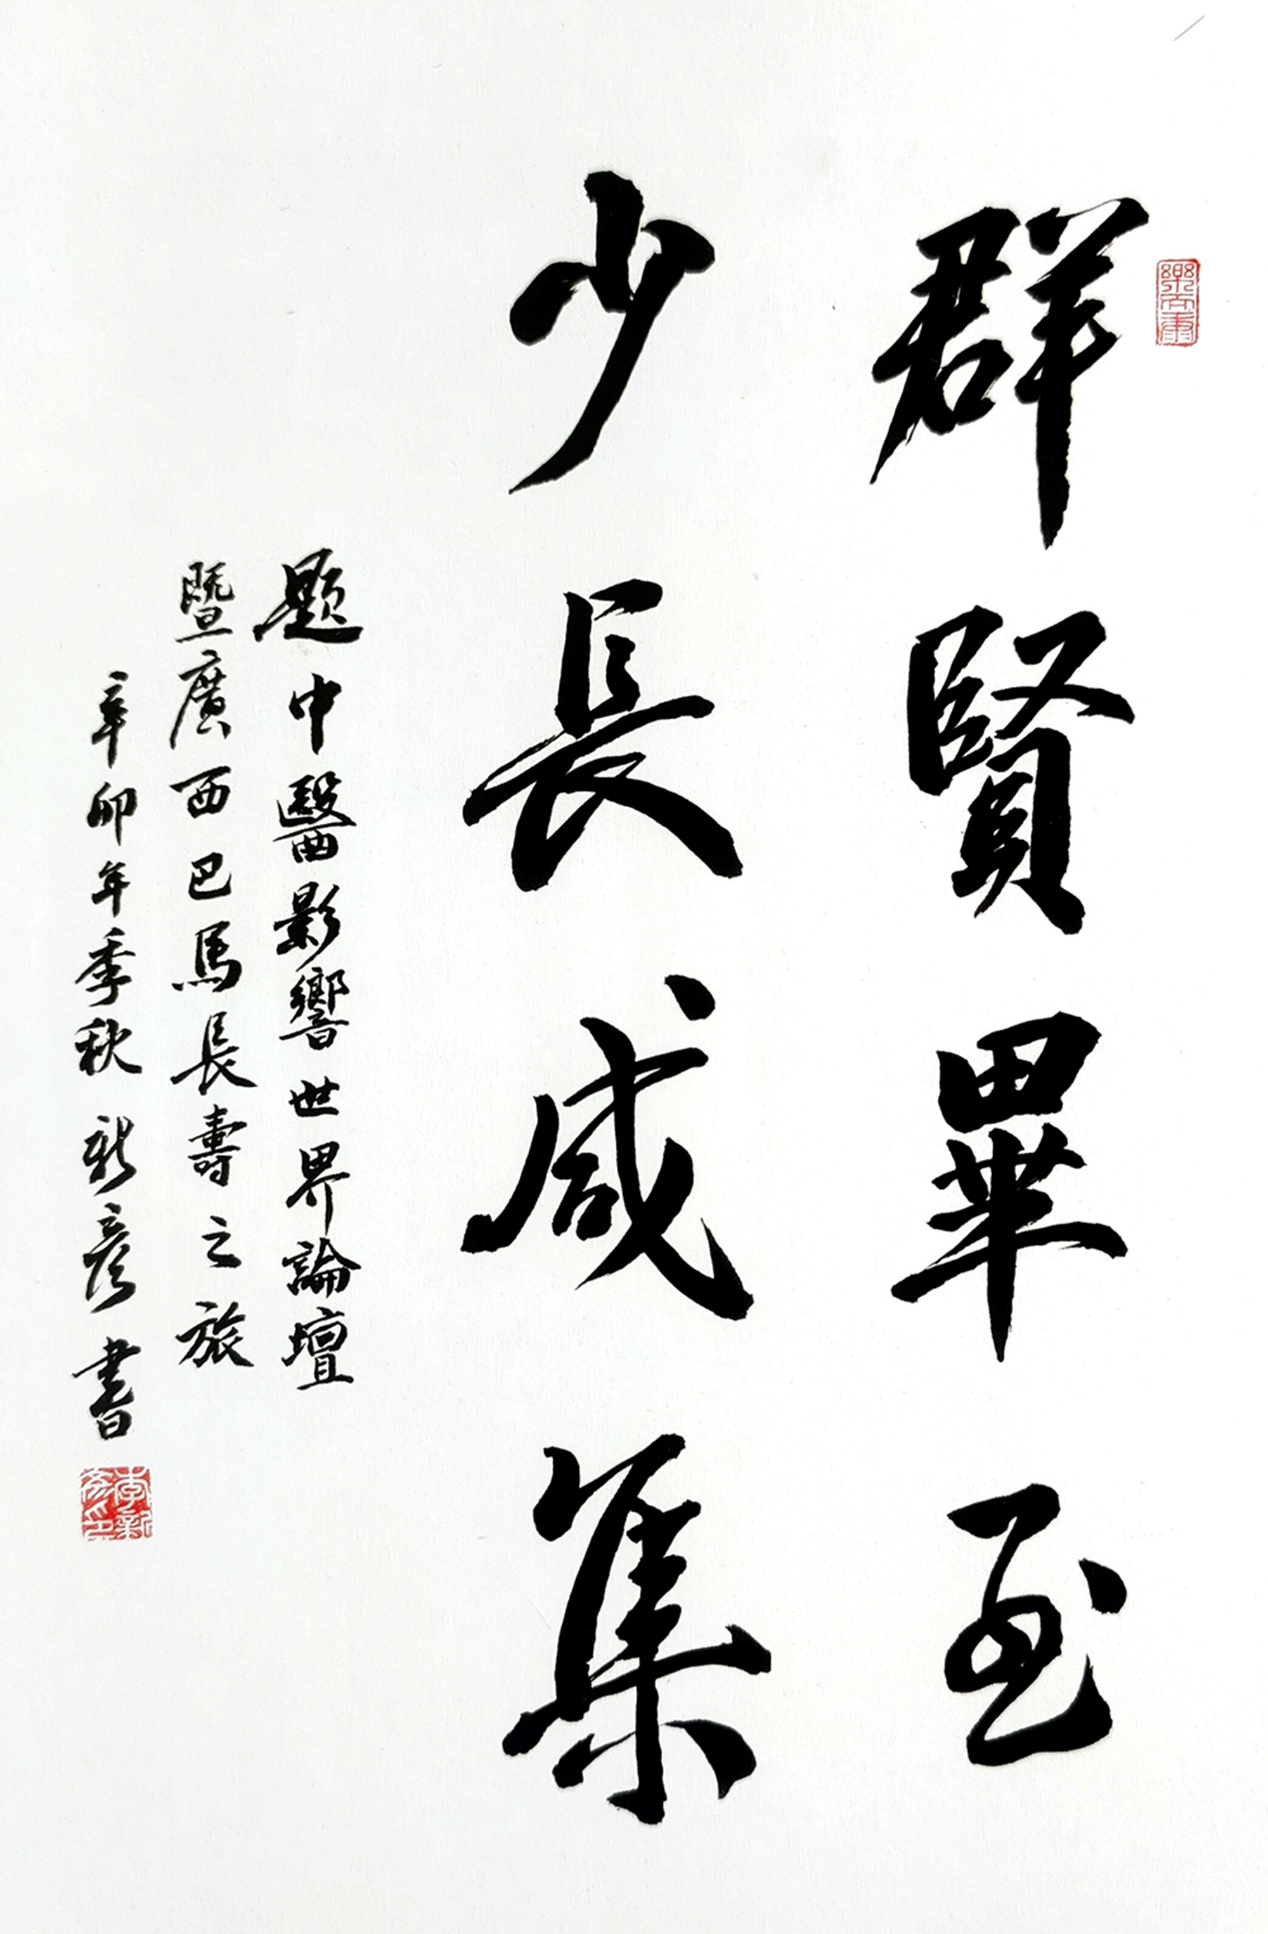 群賢畢至
少長咸集
題中醫影響世界論壇
暨廣西巴馬長壽之旅
辛卯年季秋新彥書
李新彥印